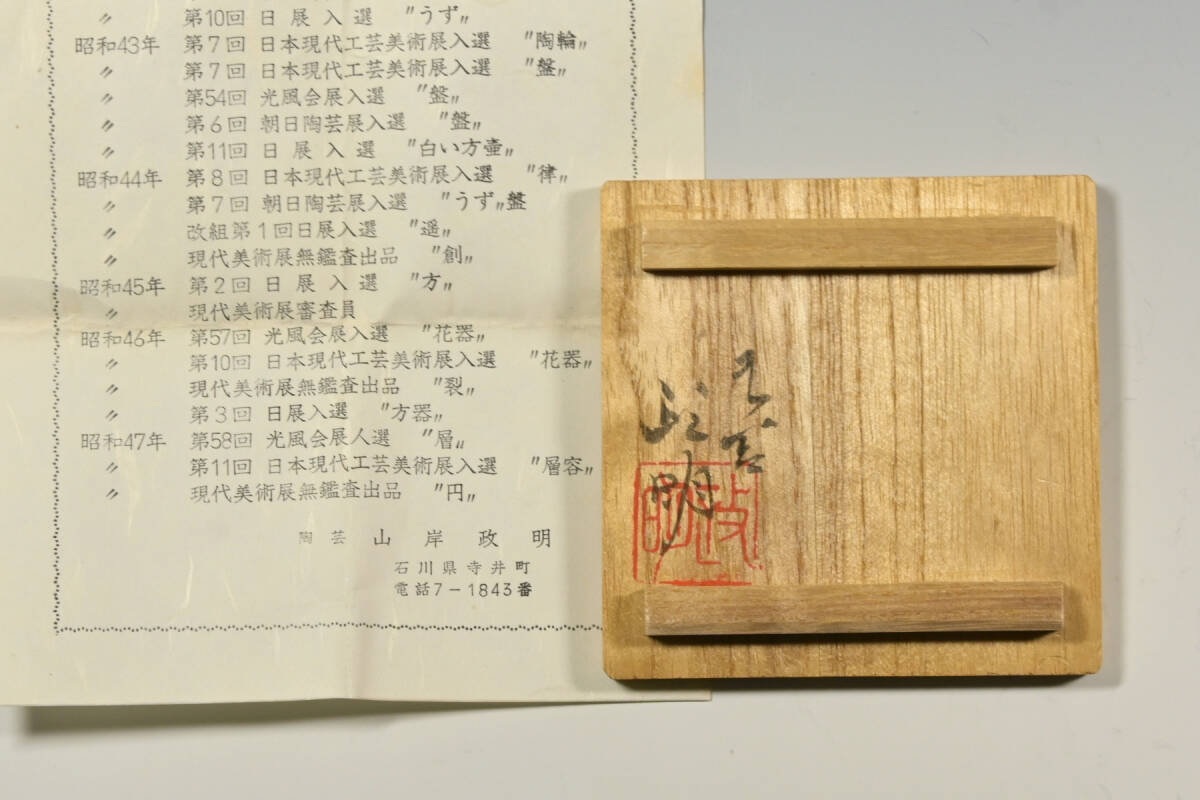 〃 第10回 日展入選 〃うず〃
昭和43年 第7回 日本現代工芸美術展入選 〃陶輪〃
〃 第7回 日本現代工芸美術展入選 〃盤〃
〃 第54回 光風会展入選 〃盤〃
〃 第6回 朝日陶芸展入選 〃盤〃
〃 第11回 日展入選 〃白い方壷〃
昭和44年 第8回 日本現代工芸美術展入選 〃律〃
〃 第7回 朝日陶芸展入選 〃うず〃盤
〃 改組第1回日展入選 〃遥〃
〃 現代美術展無鑑査出品 〃創〃
昭和45年 第2回 日展入選 〃方〃
〃 現代美術展審査員
昭和46年 第57回 光風会展入選 〃花器〃
〃 第10回 日本現代工芸美術展入選 〃花器〃
〃 現代美術展無鑑査出品 〃裂〃
〃 第3回 日展入選 〃方器〃
昭和47年 第58回 光風会展人選 〃層〃
〃 第11回 日本現代工芸美術展入選 〃層容〃
〃 現代美術展無鑑査出品 〃円〃
陶芸 山岸政明
石川県寺井町
電話7-1843番
政明